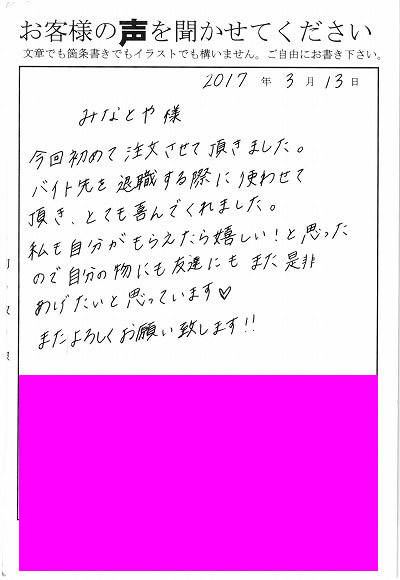 お客様の声を聞かせてください
文章でも箇条書きでもイラストでも構いません。ご自由にお書き下さい。
2017 年 3 月 13 日
みなとや様
今回初めて注文させて頂きました。
バイト先を退職する際に使わせて
頂き、とても喜んでくれました。
私も自分がもらえたら嬉しい!と思った
ので自分の物にも友達にもまた是非
あげたいと思っています♡
またよろしくお願い致します!!